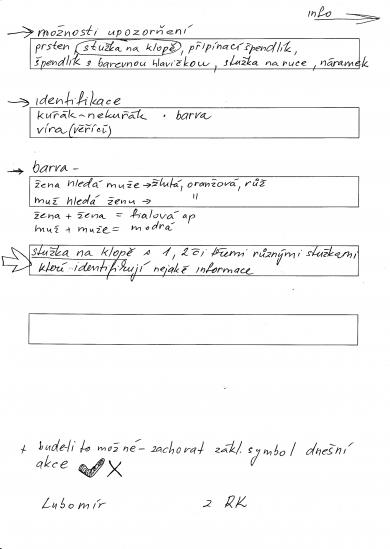 info
možnosti upozornění
prsten, stužka na klopě, připínací špendlík,
špendlík s barevnou hlavičkou, stužka na ruce, náramek
identifikace
kuřák - nekuřák · barva
víra (věřící)
barva -
žena hledá muže → žlutá, oranžová, růž
muž hledá ženu → "
žena + žena = fialová ap
muž + muže = modrá
stužka na klopě s 1, 2 či třemi různými stužkami
které identifikují nejaké informace
+ budeli to možné - zachovat zákl. symbol dnešní
akce
Lubomír z RK